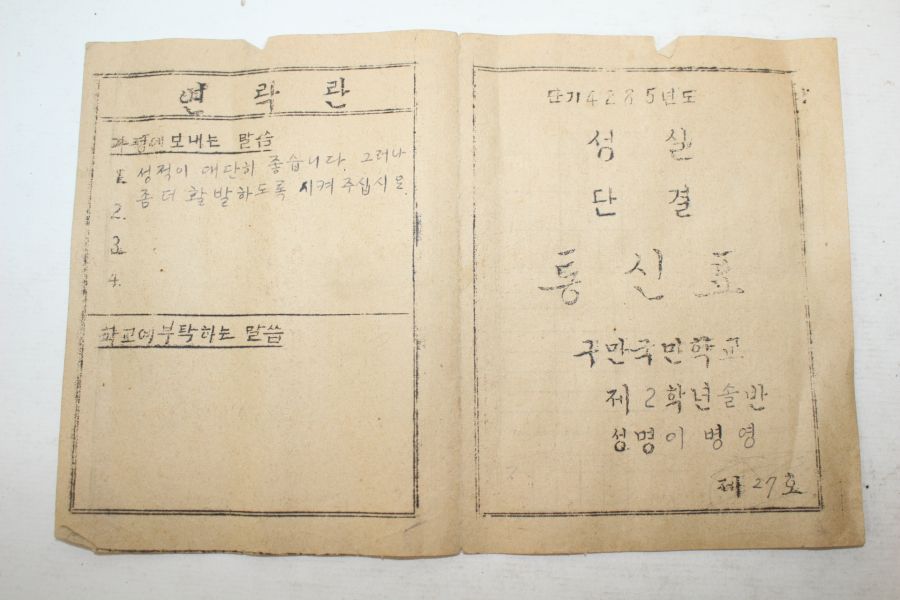 연락란
가정에 보내는 말씀
1. 성적이 대단히 좋습니다. 그러나
좀 더 활발하도록 시켜 주십시오.
2.
3.
4.
학교에 부탁하는 말씀
단기 4285년도
성실
단결
통신표
구만국민학교
제2학년솔반
성명 이병영
제 27호